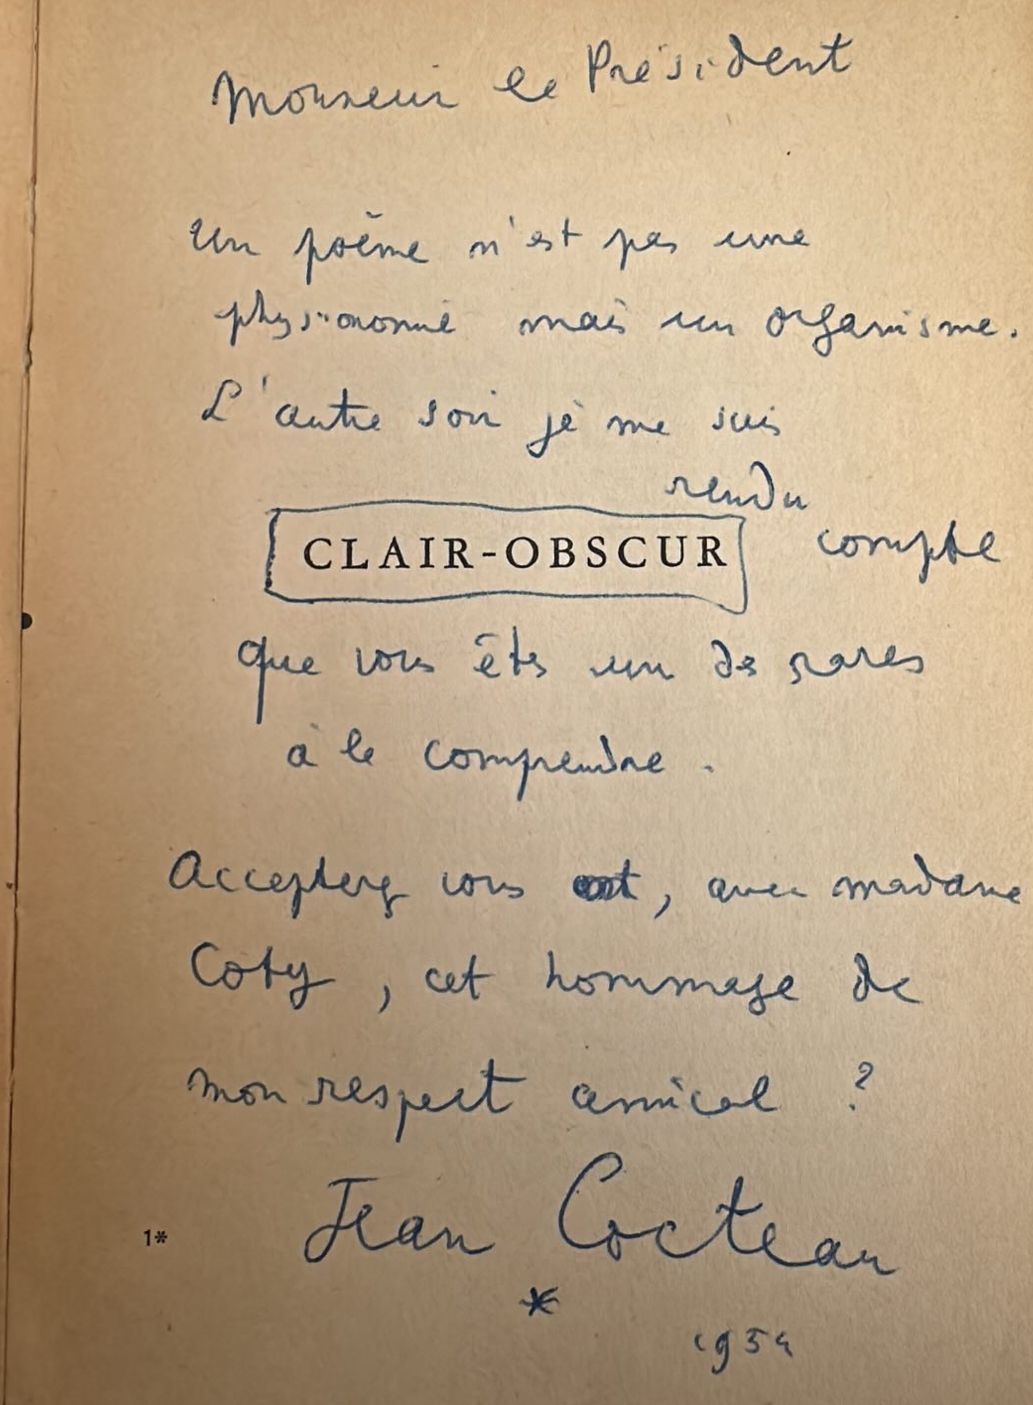 Monsieur le Président
Un poème n'est pas une
physionomie mais un organisme.
L'autre soir je me suis
rendu
CLAIR-OBSCUR compte
que vous êtes un des rares
à le comprendre.
Accepterez vous, avec madame
Coty, cet hommage de
mon respect amical ?
Jean Cocteau
1*
*
1954